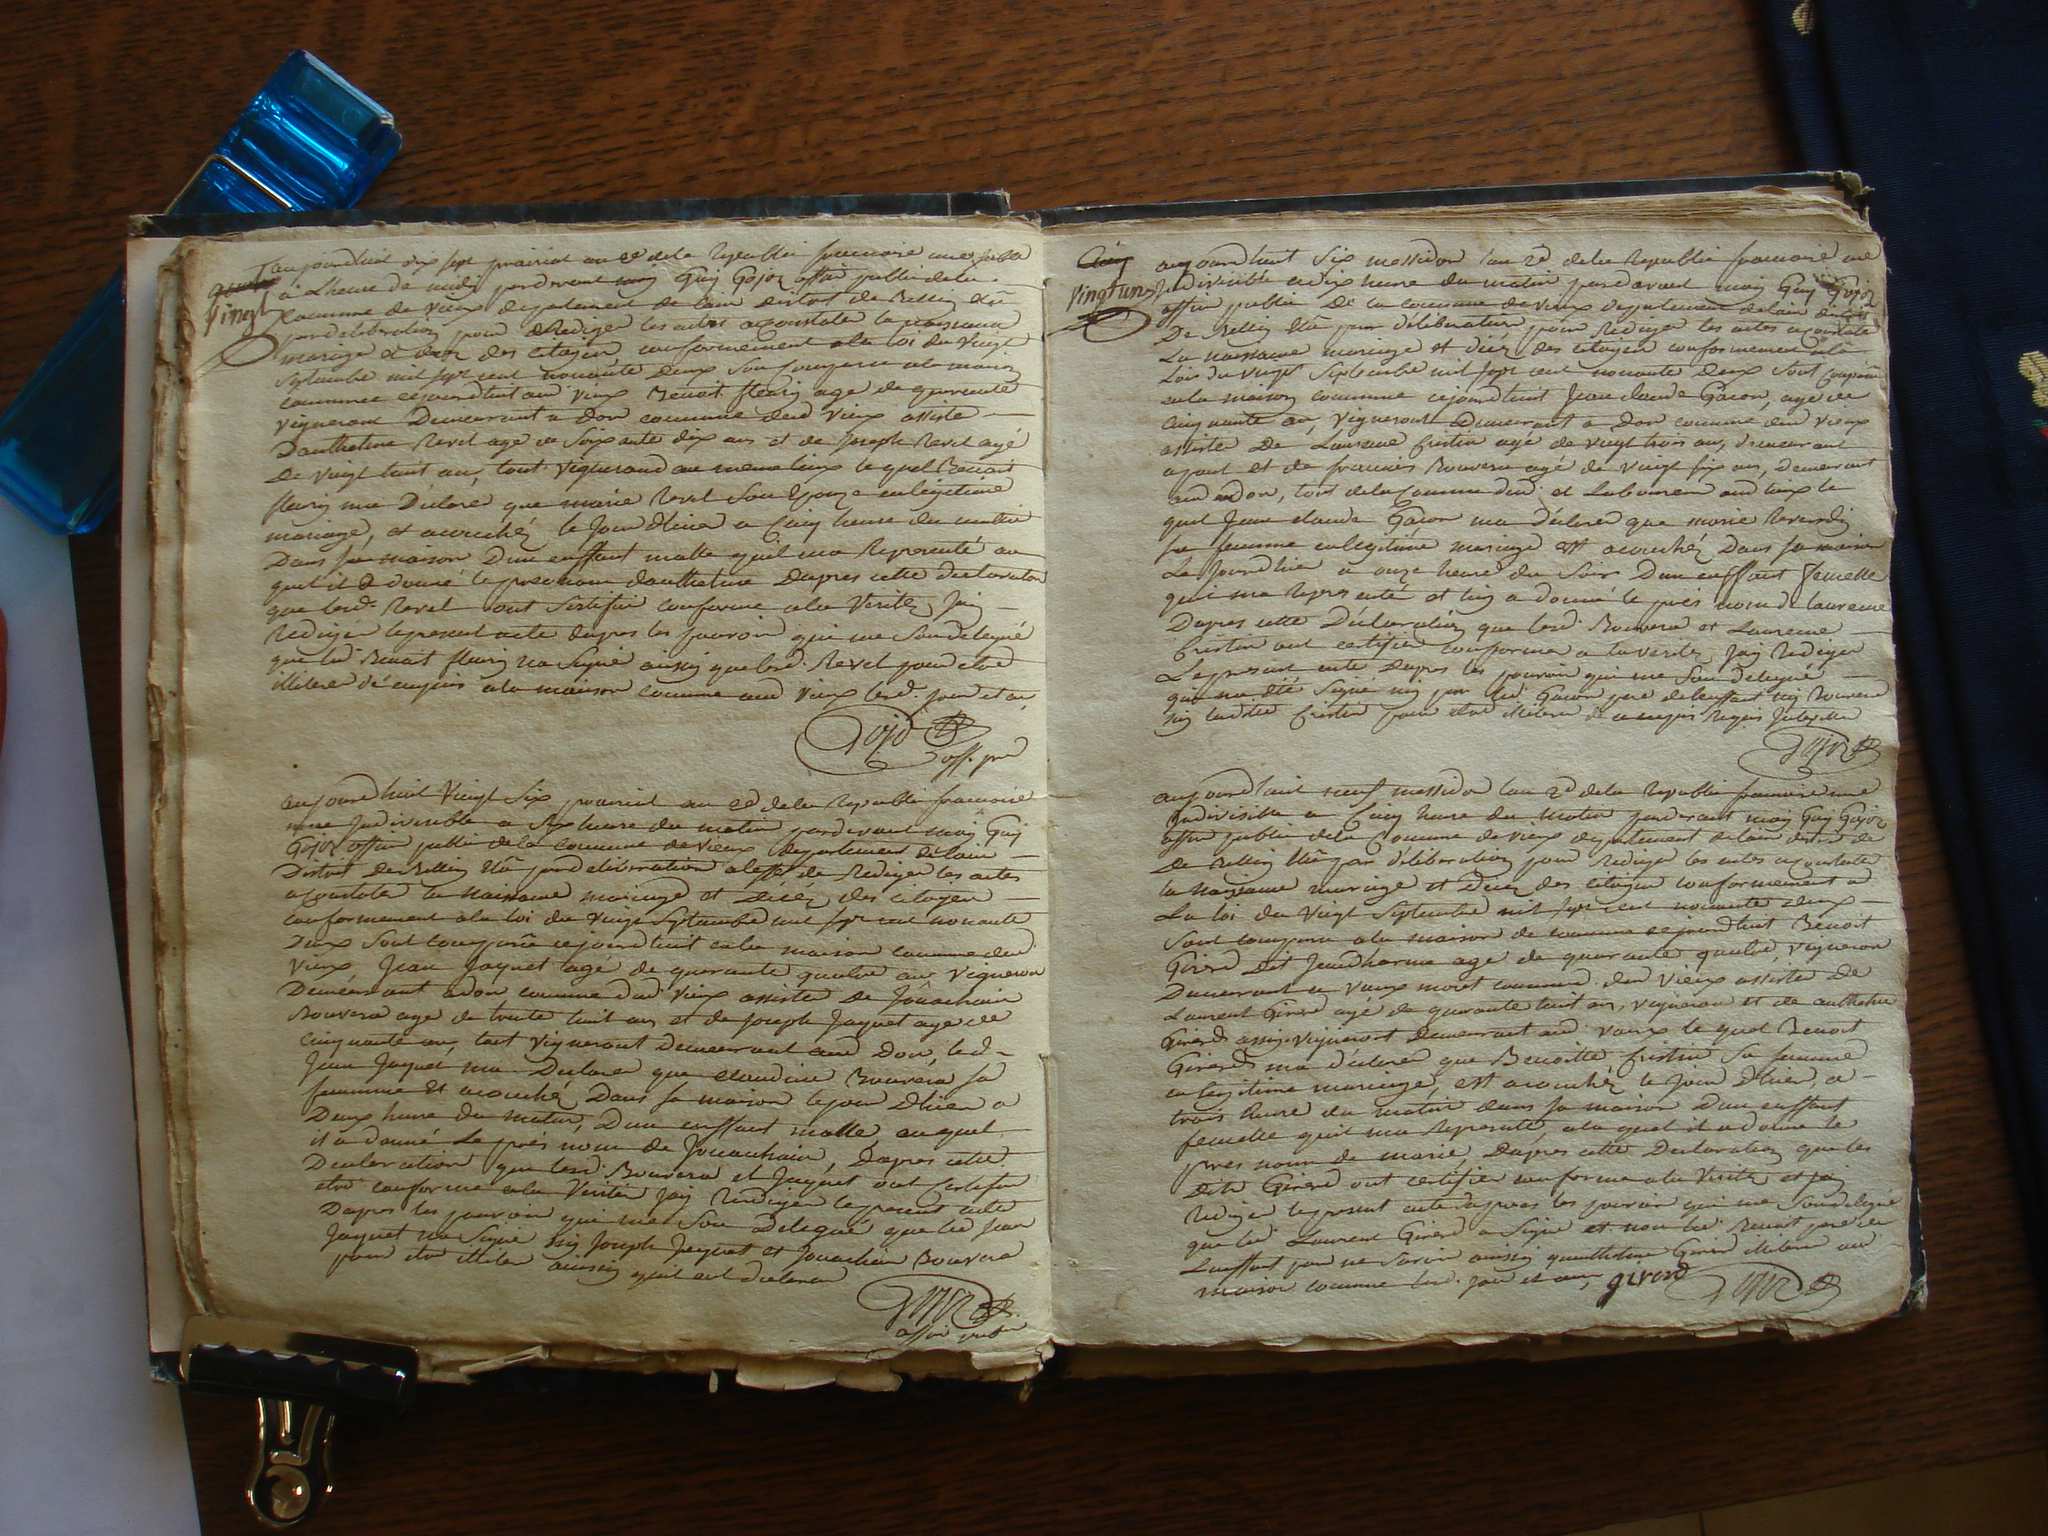 Vingt
aujourdhuit dix sept prairial an 2e de la Republi francoise une indisi
a Lheure de midy pardevant moy Guy Gojoz offin public de la
commune de vieux departement de lain distrot de Belley
par deliberation pour Rediger les actes a constate la naissance
mariage et des citoien conformement a la loi du vingt
septembre mil sept cent nonante deux son comparu a la maison
commune cejourdhuit aud vieux Benoit fleury age de quarente
vigneront Demeurant a Don commune dud vieux assiste
Danthelme Revel age de soixante dix ans et de joseph Revel agé
De vingt huit an, tout vigneront au meme lieux le quel Benoit
fleury ma Déclare que marie Revel Son Epouze en legitime
mariage, et acouchéz le jour dhier a Cinq heure du matin
Dans sa maison Dun enffant malle quil ma Represente au
quel il a donné le prenom danthelme Dapres cette declaration
que lesd. Revel ont sertifier conforme a la Veritez jay
Rediger lepresent acte dapres les pouvoir qui me sondelegué
que led Benoit fleury na Signe ainsy que lesd. Revel pour etre
illitere de enquis a la maison commune aud vieux lesd. jour et an,
Gojoz
off. pu
aujourdhuit Vingt Six prairial an 2e de la Republi francoise
une Indivisible a Sept heure du matin pardevant moy Guy
Gojoz offin public de la commune de vieux departement de lain
Distrot de Belley par deliberation a leffet de Rediger les actes
a constate la naissance mariage et Décez des citoien
conformement a la loi du vingt Septembre mil sept cent nonante
Deux Sont comparu cejourdhuit a la maison commune dud
vieux Jean jaquet agé de quarante quatre an vigneron
Demeurant a don commune dud vieux assiste de Jouachain
Bouvera age de trente huit an et de joseph jaquet age de
Cinquante an, tout vigneront Demeurant aud Don, led
Jean Jaquet ma Declare que claudine Bouvera sa
femme Et acouchéz Dans sa maison le jour Dhier a
Deux heure du matin, Dun enffant malle auquel
il a donné Le prés nom de Jouachain, Dapres cette
Declaration que lesd. Bouvera et Jaquet ont sertifier
etre conforme a la Veritéz jay Rediger le present acte
Dapres les pouvoir qui me son Deleguè que led Jean
Jaquet na Signe ny Joseph Jaquet et Jouachin Bouvera
pour etre illitere ainsy quil ont declarer
Gojoz
offin public
Cinq
Vingtun
aujourdhuit Six messidor lan 2e de la Republi francoise une
indivisible a dix heure du matin pardevant moy Guy Gojoz
offin public De la commune de vieux departement de lain
De Belley par déliberation pour Rediger les actes a constate
La naissance mariage et décéz des citoien conformement a la
Loi du vingt Septembre mil sept cent nonante deux sont comparu
a la maison commune cejourdhuit Jean claude Gacon, age de
cinquante an, vigneront Demeurant a Don commune dud vieux
assiste De Laurence Cristin agé de vingt trois an, demeurant
et de francois Bouvera agé de vingt six an, demeurant
aud don, tout de la commune dud. et Laboureur aud lieux le
quel Jean claude Gacon ma déclare que marie Reverdy
sa femme en legitime mariage est acouchéz Dans sa maison
Le jour dhier a onze heure du Soir Dun enffant femelle
qui ma Represente et luy a donné le prés nom de laurence
Dapres cette Déclaration que lesd. Bouvera et Laurence
Cristin ont certifier conforme a la veritéz jay Rediger
Le present acte Dapres les pouvoir qui me Son delegué
qui na été Signe ny par led Gacon pere de lenffant ny Bouvera
ny ladite Cristin pour etre illitere de enquis
Gojoz
aujourdhuit neuf messidor lan 2e de la Republi francoise une
Indivisible a Cinq heure du matin pardevant moy Guy Gojoz
offin public de la Commune de vieux departement de lain distrot de
De Belley par déliberation pour Rediger les actes a constate
La Naissance mariage et Decez des citoien conformement a
La loi du vingt Septembre mil sept cent nonante deux
Sont comparu a la maison de commune cejourdhuit Benoit
Girerd dit Jeandharme age de quarante quatre, vigneron
Demeurant a vaux moret commune dud Vieux assiste De
Laurent Girerd agé de quarante huit an, vigneron et de anthelme
Girerd aussy vigneront Demeurant aud vaux le quel Benoit
Girerd ma déclarer que Benoitte Cristin Sa femme
en legitime mariage, est acouchéz le jour Dhier, a
trois heure du matin dans sa maison Dun enffant
femelle quil ma Represente, a la quel il a donne le
prés nom de marie, Dapres cette Declaration que les
Dits Girerd ont certifier conforme a la Veritéz et jay
Rediger le present acte dapres les pouvoir qui me Son delegué
que led. Laurent Girerd a Signe et non led. Benoit pere de
Lenffant pour ne savoir ainsy quanthelme Girerd illitere aud
maison commune lesd. jour et an, Girerd Gojoz